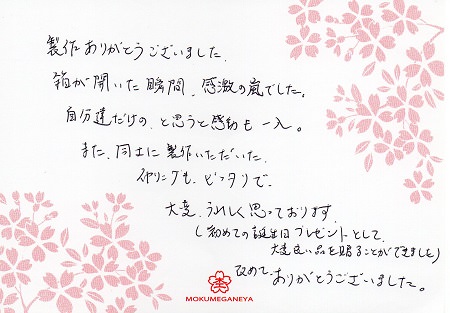 製作ありがとうございました。
箱が開いた瞬間、感激の嵐でした。
自分達だけの、と思うと感動も一入。
また、同士に製作いただいた、
イヤリングも、ピッタリで、
大変、うれしく思っております。
(初めての誕生日プレゼントとして、
大変良い品を贈ることができました)
改めて、ありがとうございました。
MOKUMEGANEYA